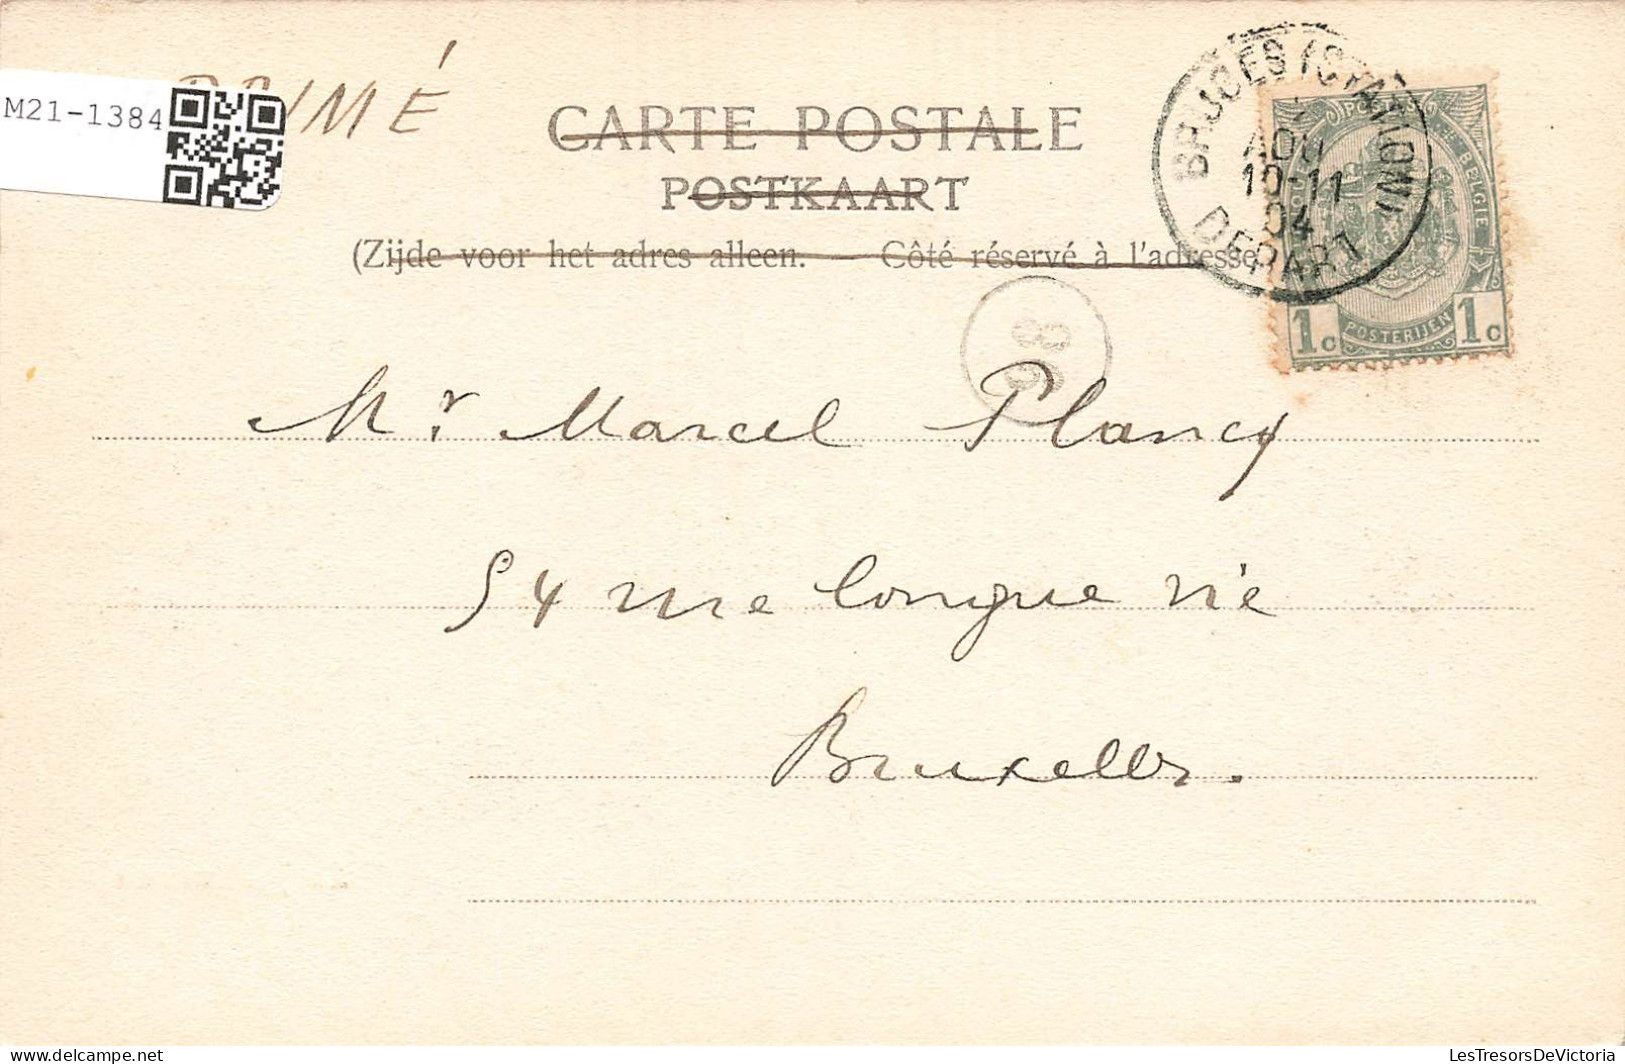 M21-1384
IMÉ
CARTE POSTALE
POSTKAART
(Zijde voor het adres alleen. — Côté réservé à l'adresse
BRUGES (STATION)
AOU
10-11
04
DEPART
BELGIE
POSTERIJEN
1c 1c
Mr. Marcel Plancq
54 rue longue vie
Bruxelles.
LesTresorsDeVictoria